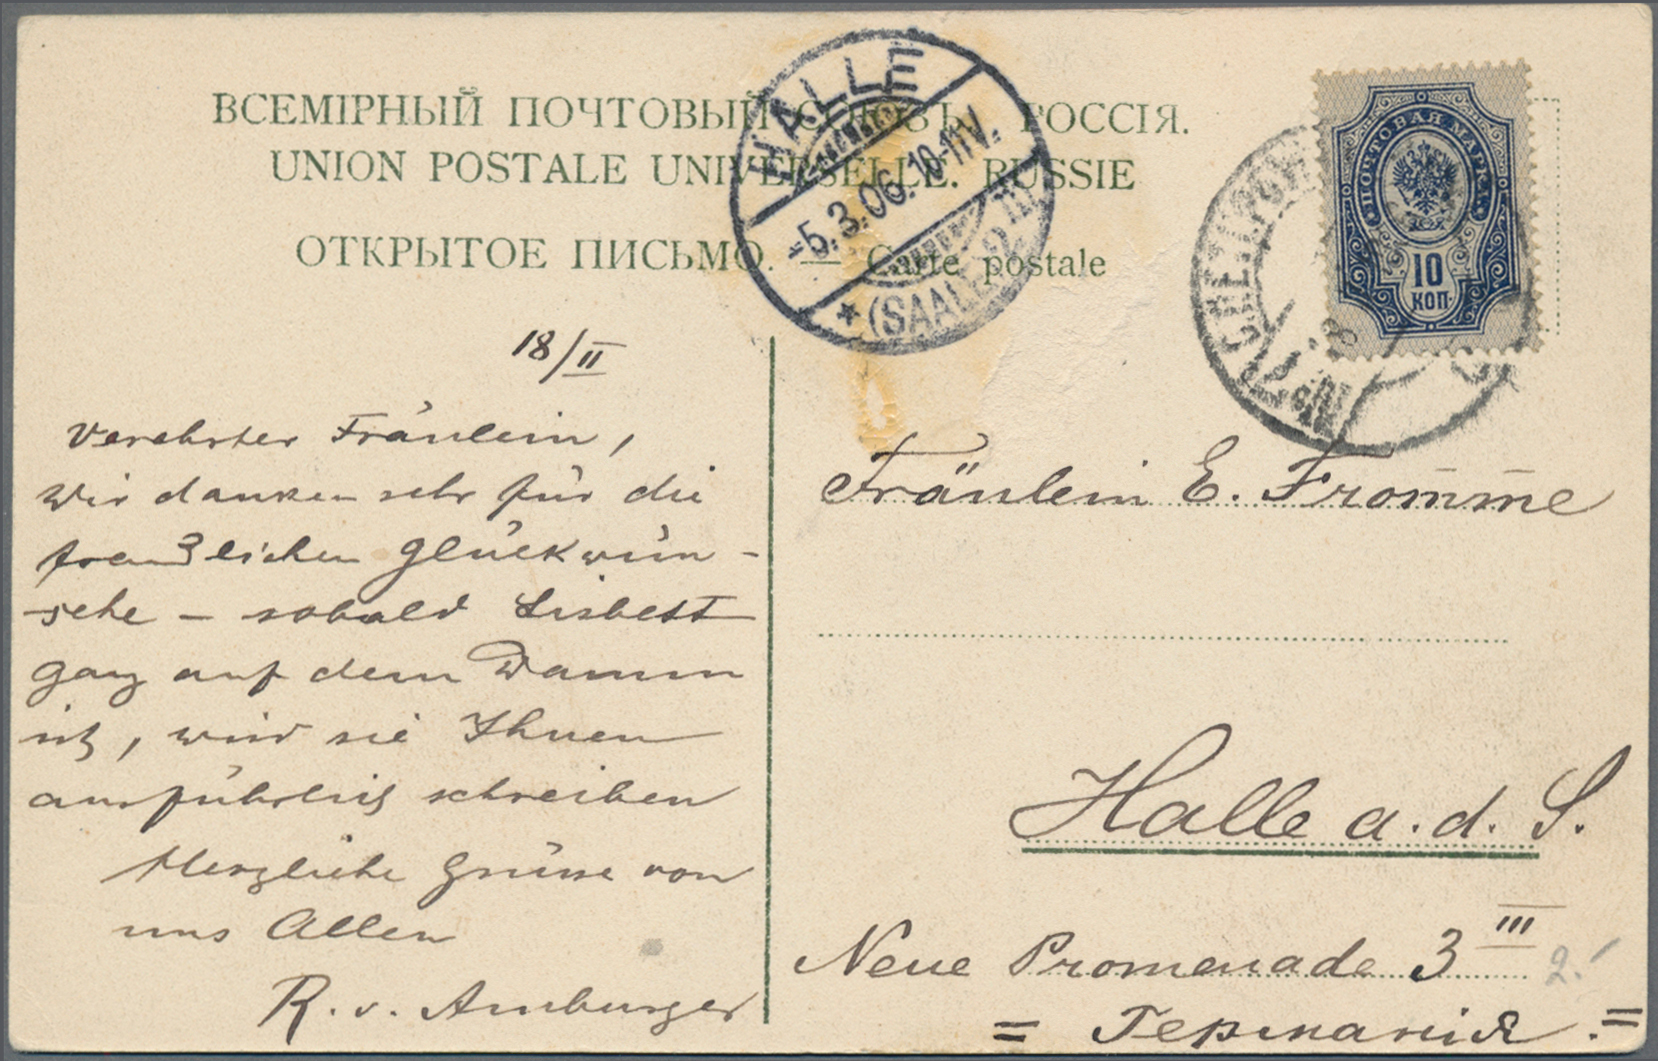 ВСЕМІРНЫЙ ПОЧТОВЫЙ СОЮЗЪ. РОССІЯ.
UNION POSTALE UNIVERSELLE. RUSSIE
ОТКРЫТОЕ ПИСЬМО. — Carte postale
HALLE
-5.3.06.10-11V.
* (SAALE) 2 III
ПОЧТОВАЯ МАРКА
10
КОП.
18/II
Verehrter Fräulein,
Wir danken sehr für die
freundlichen Glückwün-
sche – sobald Lisbeth
ganz auf dem Damm
ist, wird sie Ihnen
ausführlich schreiben
Herzliche Grüsse von
uns Allen
R. v. Amburger
Fräulein E. Fromme
Halle a. d. S.
Neue Promenade 3 III
2.
= Германія. =